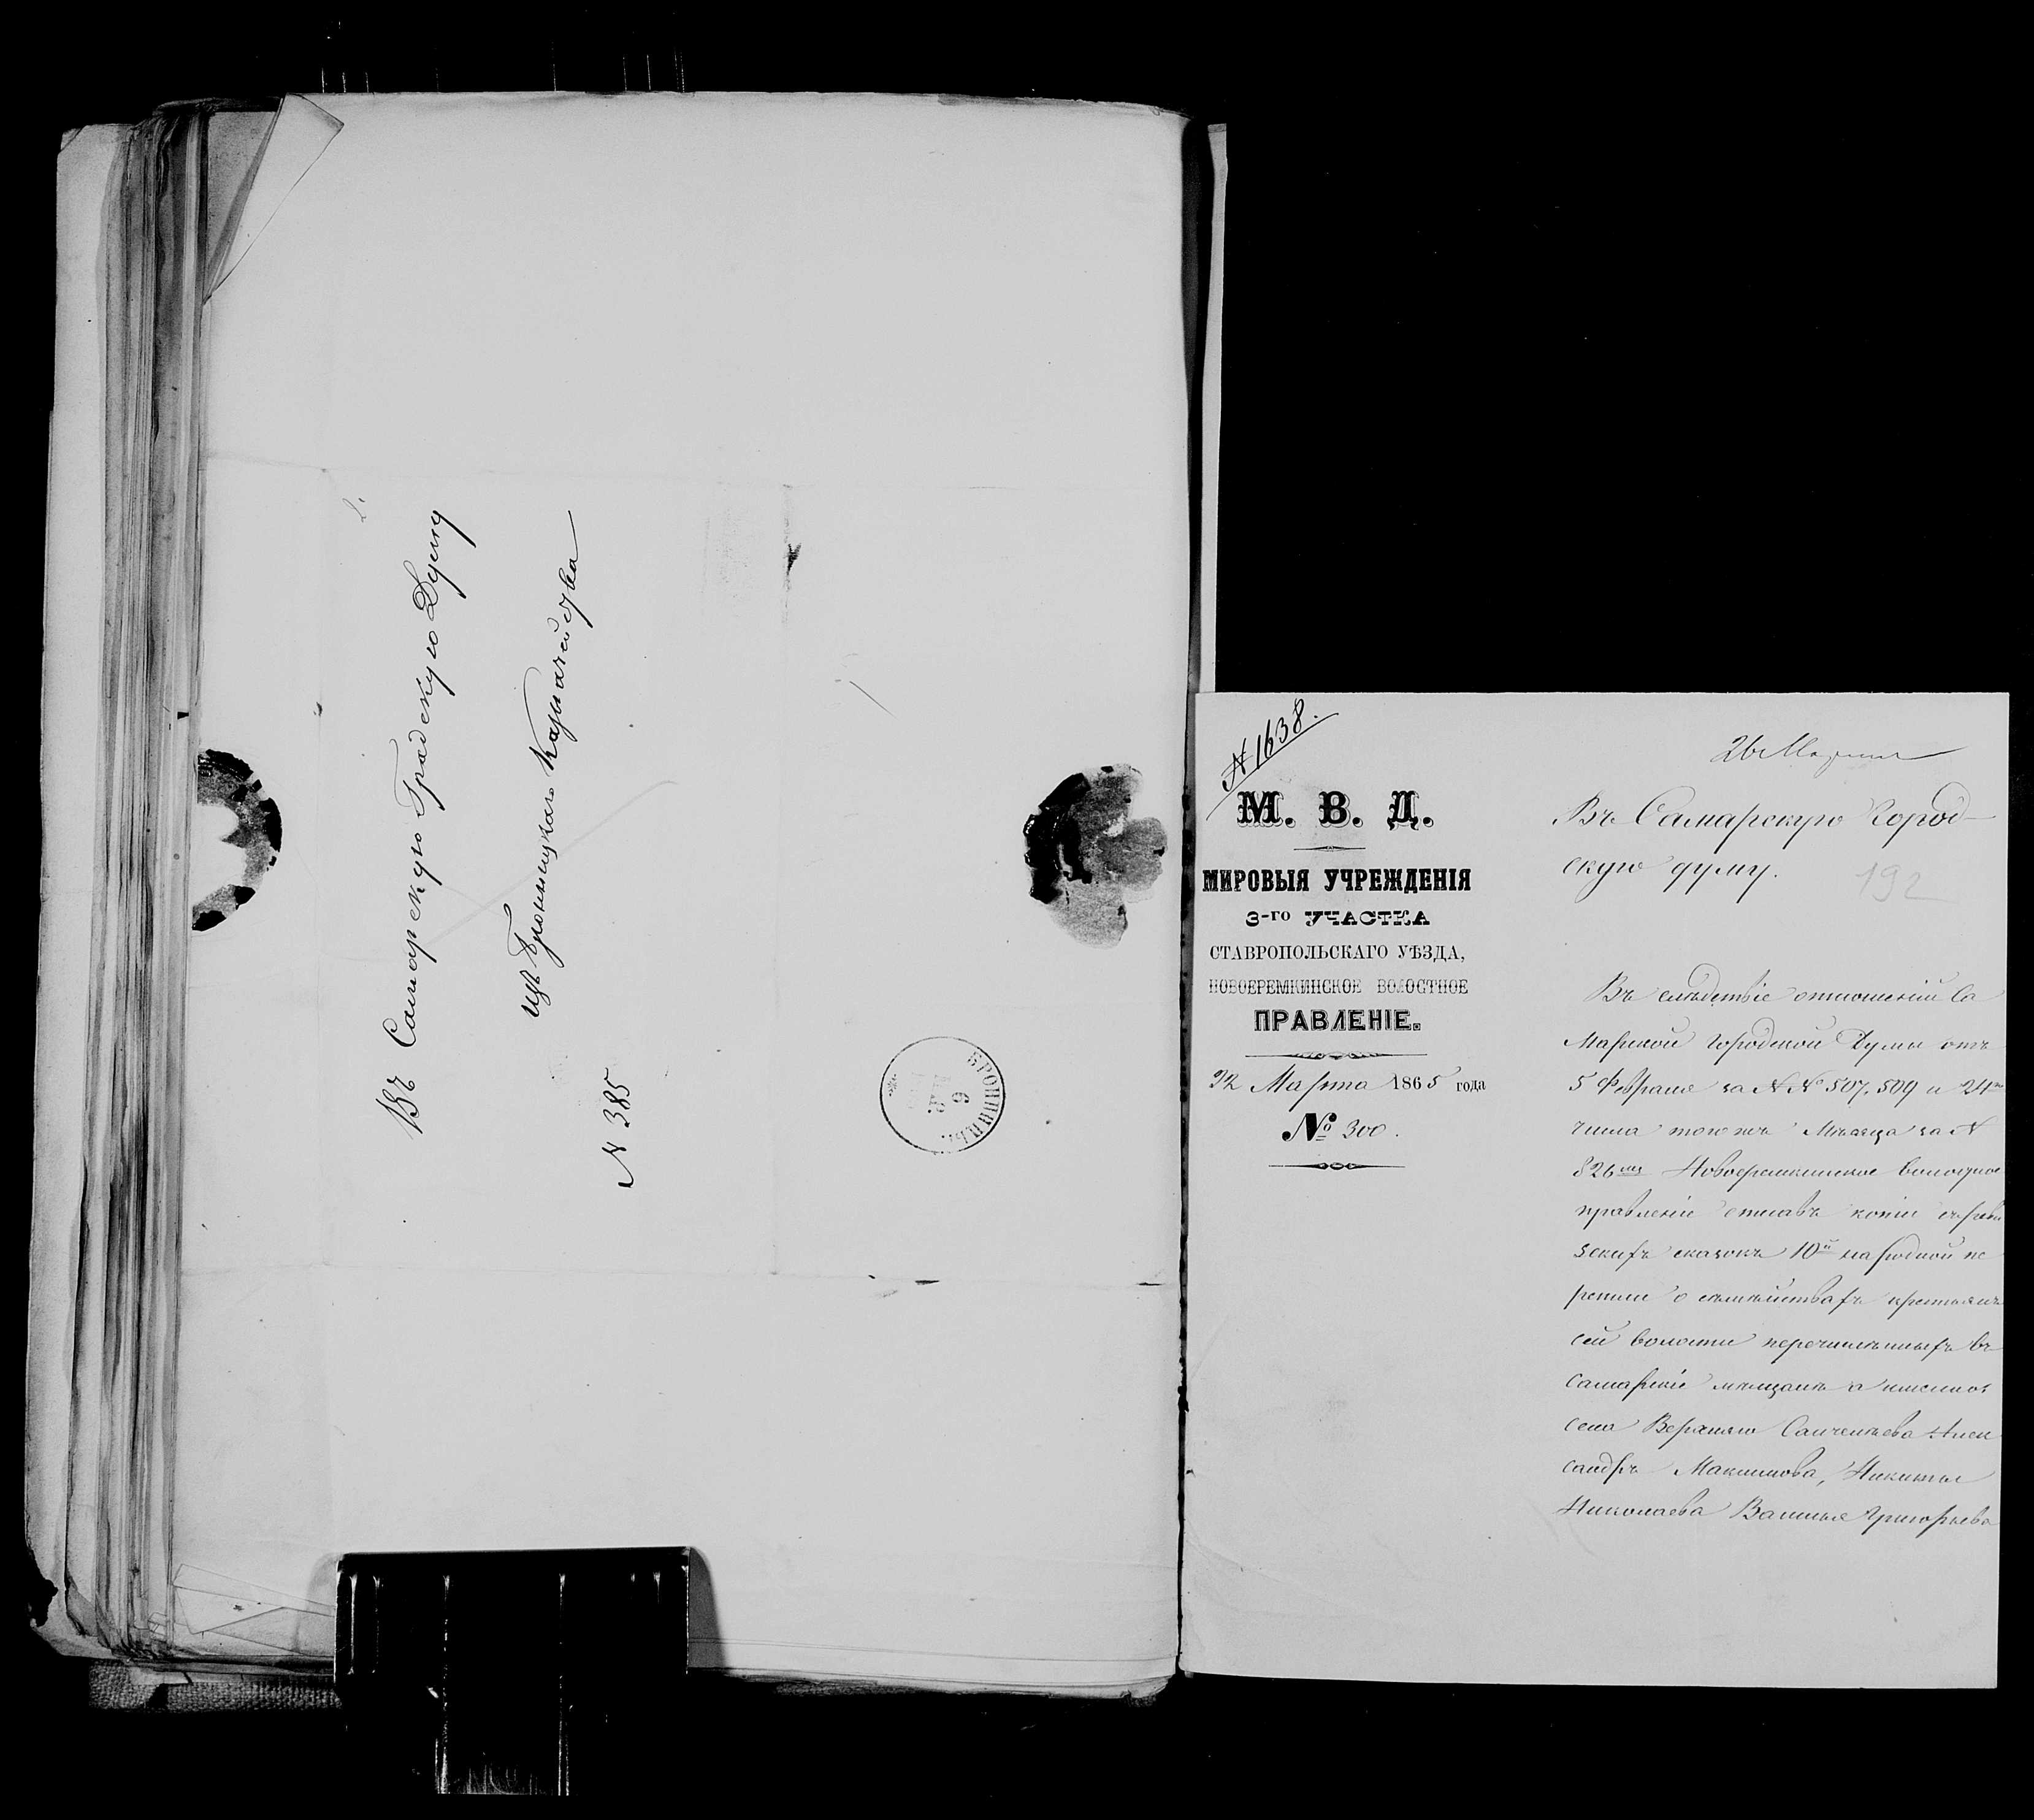 Въ Самарскую Градскую Думу
изъ Бронницкаго Казначейства
N 385
БРОННИЦЫ
N 1638.
М. В. Д.
МИРОВЫЯ УЧРЕЖДЕНІЯ
3-го УЧАСТКА
СТАВРОПОЛЬСКАГО УѢЗДА,
НОВОЕРЕМКИНСКОЕ ВОЛОСТНОЕ
ПРАВЛЕНІЕ.
22 Марта 1865 года
№ 300.
26 Марта
Въ Самарскую Город-
скую думу.
192
Въ слѣдствіе отношеній Са
марской Городской Думы отъ
5 Февраля за N№ 507, 509 и 24го
числа того жъ Мѣсяца за N
826мъ Новоеремкинское волостное
правленіе копіи съ реви
зскихъ сказокъ 10й народной пе
реписи о семѣйствахъ крестьянъ
сей волости перечисленныхъ въ
самарскіе мѣщане а именно:
села Верхняго Санчелѣева Алек
сандръ Максимова, Никиты
Николаева Василья Григорьева